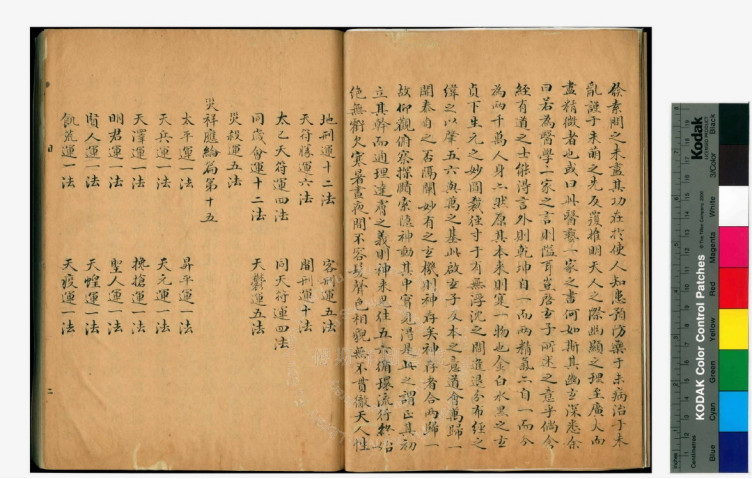 發素問之未盡其功在於使人知患預防藥于未病治于未
亂謀于未萌之先反覆推明天人之際幽顯之理至廣大而
盡精微者也或曰此醫藝一家之書何如斯其幽玄深悉余
曰若為醫學一家之言則隘耳豈啓玄子所述之意乎倘今
經有道之士能得言外則乾坤自一而兩精氣二自一而分
為兩千萬人身亦然原其本來則寔一物也金白水黑之玄
貞下生元之妙周載徑寸于有無浮沈之間進退分布經之
緯之以肇五六與萬之基此啟玄子反本之意通會萬歸一
開泰自之否隔闡妙有之玄機則神存矣神存者合兩歸一
故仰觀俯察探賾索隱神動其中實見得是此之謂正其初
立其幹而通理達膚之義則神來思往五六循環流行終始
絶無斷欠寒暑晝夜間不容髮聲色相貌無不貫徹天人性
地刑運十二法 客刑運五法
天符勝運六法 間刑運十法
太乙天符運四法 同天符運四法
同歲會運十二法 天獸運五法
災殺運五法
災祥應論篇第十五
太平運一法 昇平運一法
天兵運一法 天元運一法
天澤運一法 攙搶運一法
明君運一法 聖人運一法
賢人運一法 天蝗運一法
飢荒運一法 天疫運一法
目
二
Kodak
KODAK Color Control Patches
Blue Cyan Green Yellow Red Magenta White 3/Color Black
Inches
Centimetres